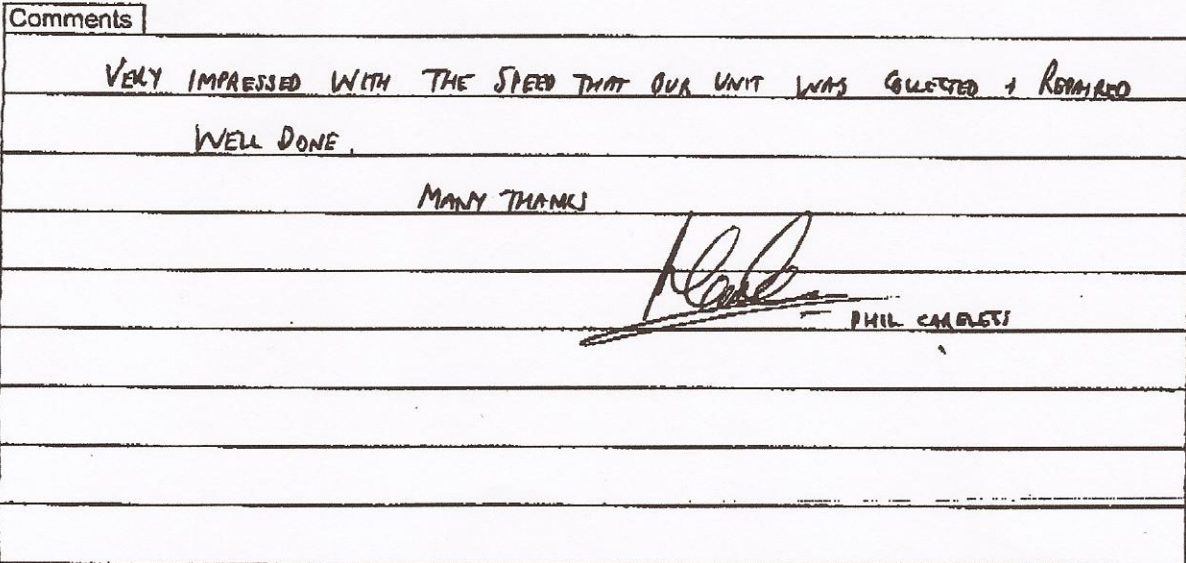 Comments
VERY IMPRESSED WITH THE SPEED THAT OUR UNIT WAS COLLECTED + REPAIRED
WELL DONE.
MANY THANKS
PHIL